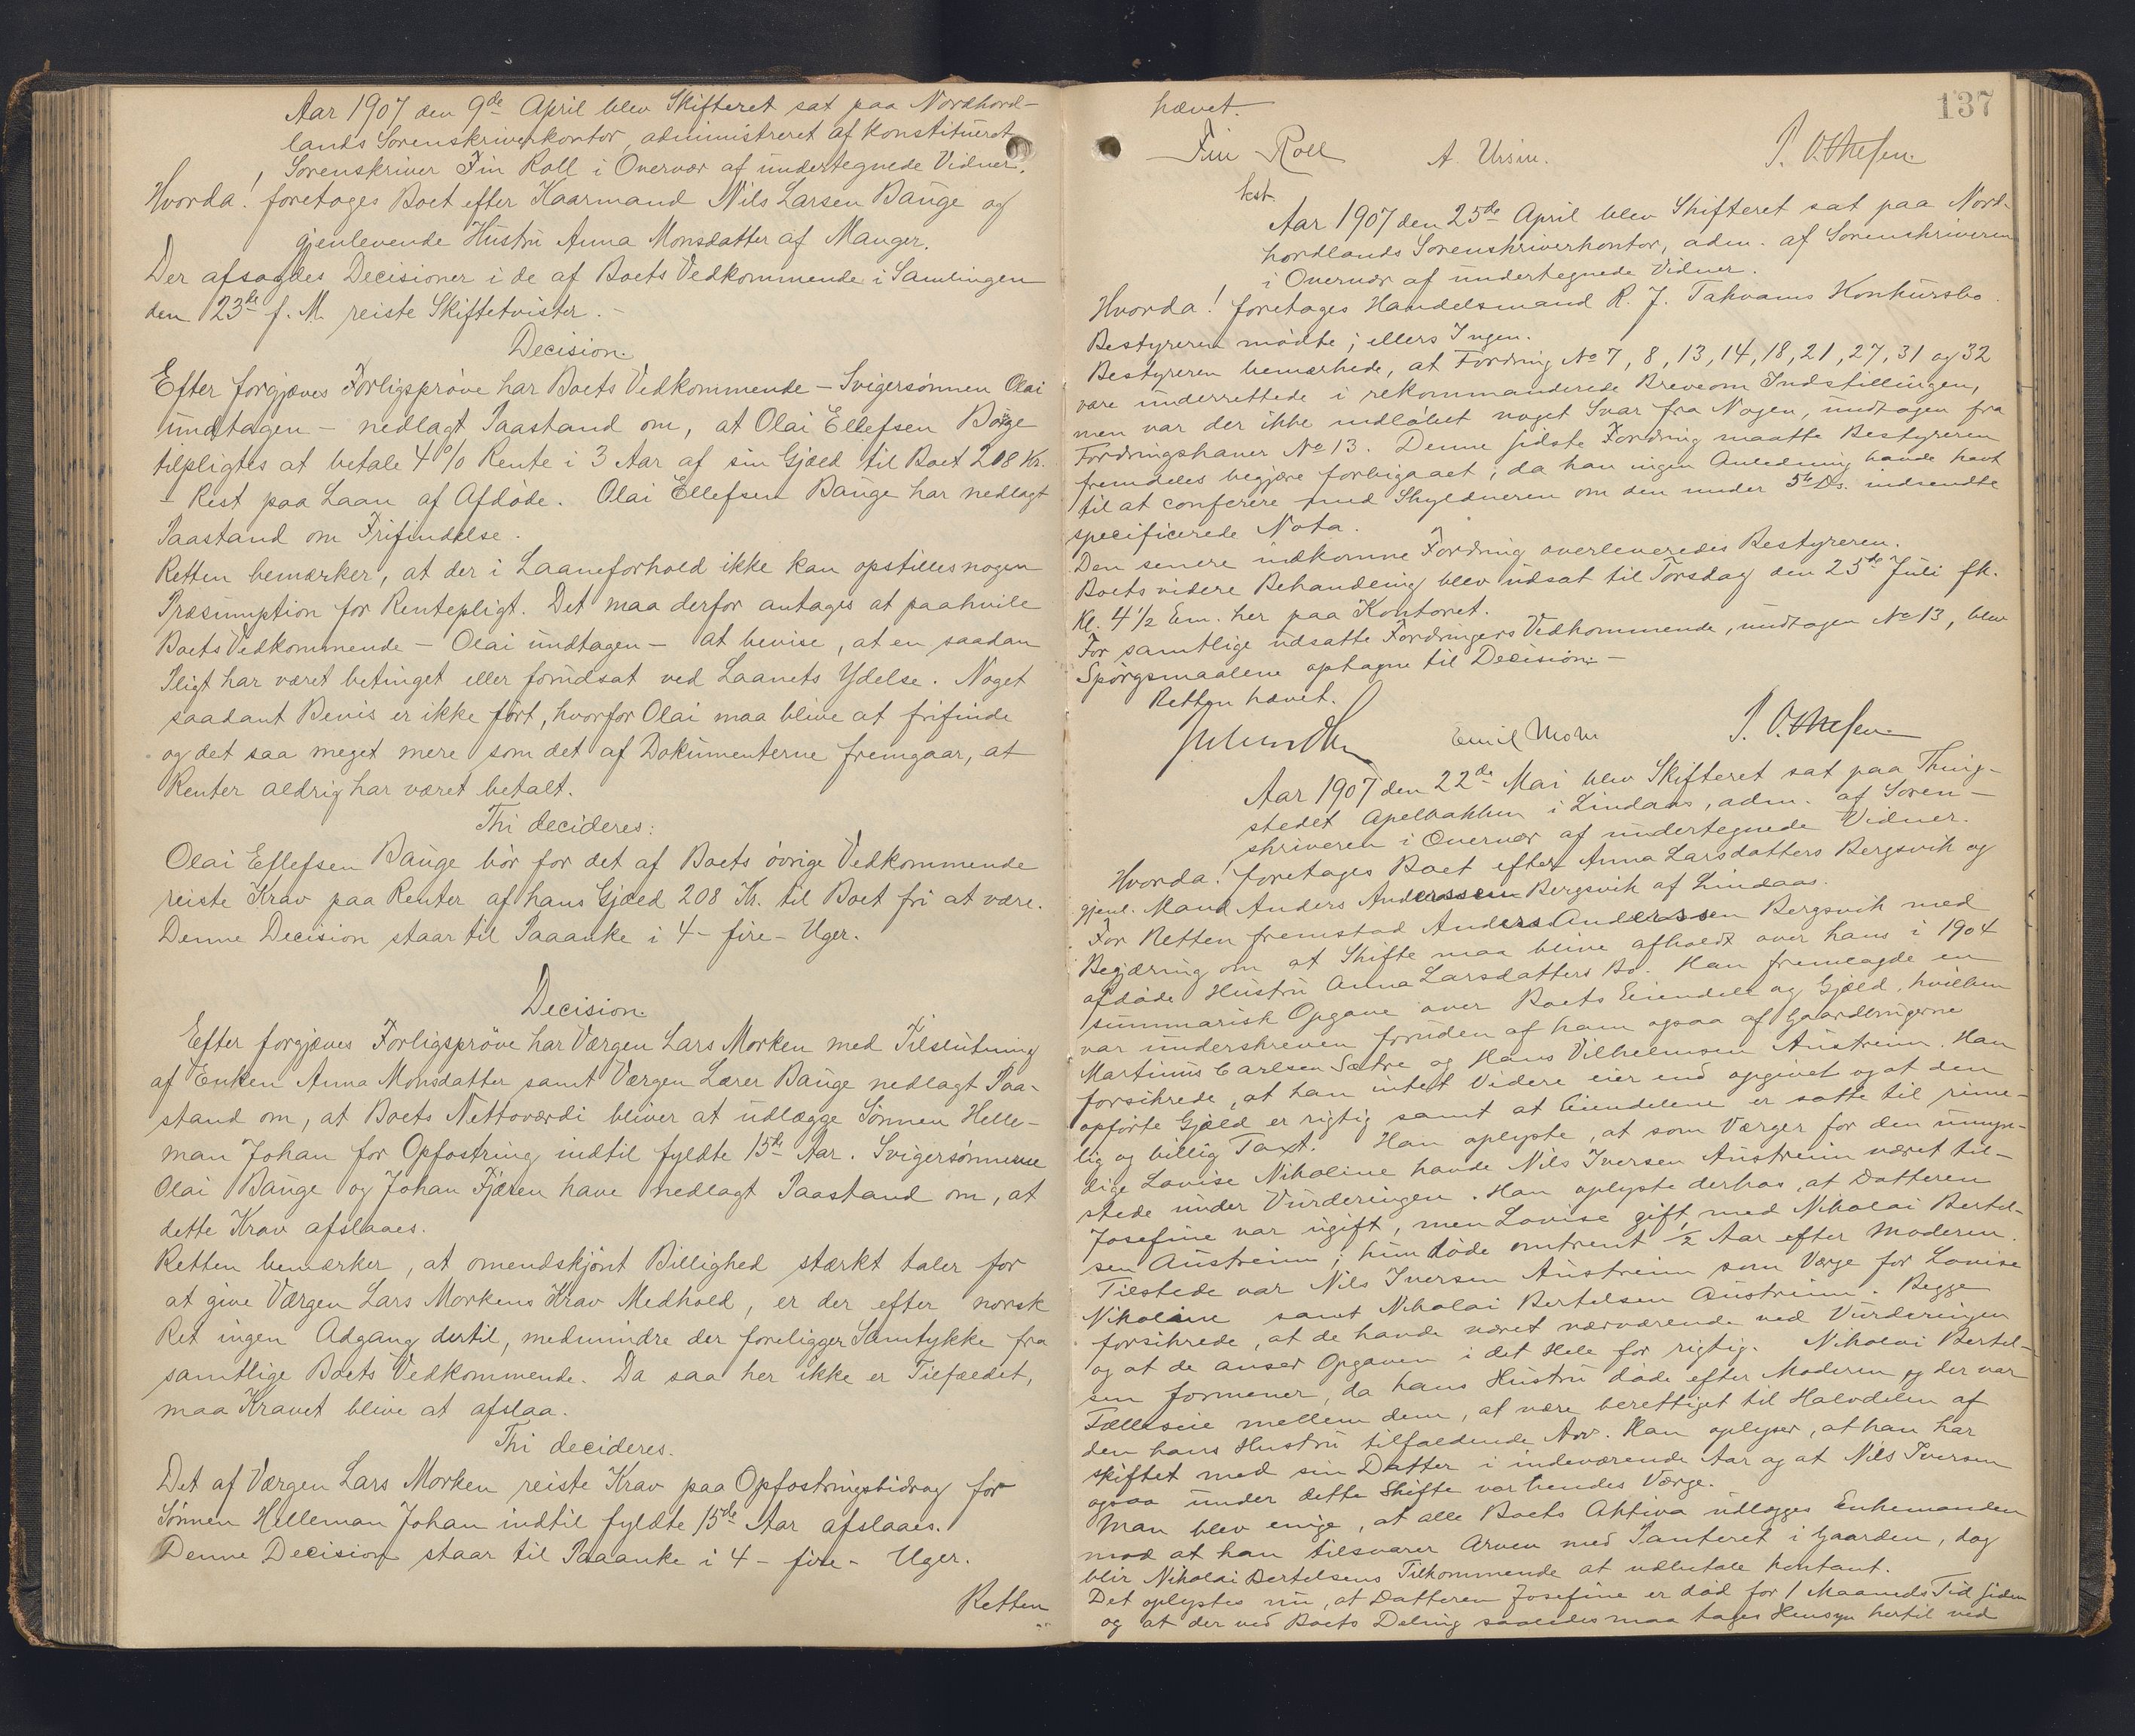 Aar 1907 den 9de April blev Skifteret sat paa Nordhord-
lands Sorenskriverkontor, administreret af konstitueret
Sorenskriver Fin Roll i Overvær af undertegnede Vidner.
Hvorda! foretoges Boet efter Kaarmand Nils Larsen Bauge og
gjenlevende Hustru Anna Monsdatter af Manger.
Der afsagdes Decisioner i de af Boets Vedkommende i Samlingen
den 23de f. M. reiste Skiftetvister.-
Decision.
Efter forgjæves Forligsprøve har Boets Vedkommende - Svigersønnen Olai
undtagen - nedlagt Paastand om, at Olai Ellefsen Bauge
tilpligtes at betale 4 % Rente i 3 Aar af sin Gjæld til Boet 208 Kr.
- Rest paa Laan af Afdøde. Olai Ellefsen Bauge har nedlagt
Paastand om Frifindelse.
Retten bemærker, at der i Laaneforhold ikke kan opstilles nogen
Præsumption for Rentepligt. Det maa derfor antages at paahvile
Boets Vedkommende - Olai undtagen - at bevise, at en saadan
Pligt har været betinget eller forudsat ved Laanets Ydelse. Noget
saadant Bevis er ikke ført, hvorfor Olai maa blive at frifinde
og det saa meget mere som det af Dokumenterne fremgaar, at
Renter aldrig har været betalt.
Thi decideres:
Olai Ellefsen Bauge bør for det af Boets øvrige Vedkommende
reiste Krav paa Renter af hans Gjæld 208 Kr. til Boet fri at være.
Denne Decision staar til Paaanke i 4 - fire - Uger.
Decision.
Efter forgjæves Forligsprøve har Værgen Lars Morken med Tilslutning
af Enken Anna Monsdatter samt Værgen Lærer Bauge nedlagt Paa-
stand om, at Boets Nettoværdi bliver at udlægge Sønnen Helle-
man Johan for Opfostring indtil fyldte 15de Aar. Svigersønnerne
Olai Bauge og Johan Fjæren have nedlagt Paastand om, at
dette Krav afslaaes.
Retten bemærker, at omendskjønt Billighed stærkt taler for
at give Værgen Lars Morkens Krav Medhold, er der efter norsk
Ret ingen Adgang dertil, medmindre der foreligger Samtykke fra
samtlige Boets Vedkommende. Da saa her ikke er Tilfældet,
maa Kravet blive at afslaa.
Thi decideres.
Det af Værgen Lars Morken reiste Krav paa Opfostringsbidrag for
Sønnen Helleman Johan indtil fyldte 15de Aar afslaaes.
Denne Decision staar til Paaanke i 4 - fire - Uger.
Retten
137
hævet.
Fin Roll A. Ursin. P. Othesen
kst.
Aar 1907 den 25de April blev Skifteret sat paa Nord-
hordlands Sorenskriverkontor, adm. af Sorenskriveren
i Overvær af undertegnede Vidner.
Hvorda! foretoges Handelsmand R. J. Takvams Konkursbo.
Bestyreren mødte; ellers Ingen.
Bestyreren bemærkede, at Fordring No 7, 8, 13, 14, 18, 21, 27, 31 og 32
vare underrettede i rekommanderede Breve om Indstillingen,
men var der ikke indløbet noget Svar fra Nogen, undtagen fra
Fordringshaver No 13. Denne sidste Fordring maatte Bestyreren
fremdeles begjære forbigaaet, da han ingen Anledning havde havt
til at conferere med Skyldneren om den under 5te Ds. indsendte
specificerede Nota.
Den senere indkomne Fordring overleveredes Bestyreren.
Boets videre Behandling blev udsat til Torsdag den 25de Juli fk.
Kl. 4 1/2 Em. her paa Kontoret.
For samtlige udsatte Fordringers Vedkommende, undtagen No 13, blev
Spørgsmaalene optagne til Decision.-
Retten hævet.
Emil Mohr P. Othesen
Aar 1907 den 22de Mai blev Skifteret sat paa Thing-
stedet Apelbakken i Lindaas, adm. af Soren-
skriveren i Overvær af undertegnede Vidner.
Hvorda! foretages Boet efter Anna Larsdatters Bergsvik og
gjenl. Mand Anders Anderssen Bergsvik af Lindaas.
For Retten fremstod Anders Anderssen Bergsvik med
Begjæring om at Skifte maa blive afholdt over hans i 1904
afdøde Hustru Anna Larsdatters Bo. Han fremlagde en
summarisk Opgave over Boets Eiendele og Gjæld, hvilken
var underskreven foruden af ham ogsaa af Gaardbrugerne
Martinus Carlsen Sætre og Hans Vilhelmsen Austreim. Han
forsikrede, at han intet Videre eier end opgivet og at den
opførte Gjæld er rigtig samt at Eiendelene er satte til rime-
lig og billig Taxt. Han oplyste, at som Værger for den umyn-
dige Lovise Nikoline havde Nils Iversen Austreim været til-
stede under Vurderingen. Han oplyste derhos, at Datteren
Josefine var ugift, men Lovise gift med Nikolai Bertel-
sen Austreim; hun døde omtrent 1/2 Aar efter Moderen.
Tilstede var Nils Iversen Austreim som Værge for Lovise
Nikoline samt Nikolai Bertelsen Austreim. Begge
forsikrede, at de havde været nærværende ved Vurderingen
og at de anser Opgaven i det Hele for rigtig. Nikolai Bertel-
sen formener, da hans Hustru døde efter Moderen og der var
Fælleseie mellem dem, at være berettiget til Halvdelen af
den hans Hustru tilfaldende Arv. Han oplyser, at han har
skiftet med sin Datter i indeværende Aar og at Nils Iversen
ogsaa under dette Skifte var hendes Værge.
Man blev enige, at alle Boets Aktiva udlægges Enkemanden
mod at han tilsvarer Arven med Panteret i Gaarden, dog
blir Nikolai Bertelsens Tilkommende at udbetale kontant.
Det oplystes nu, at Datteren Josefine er død for 1 Maaneds Tid siden
og at der ved Boets Deling saaledes maa tages Hensyn hertil ved